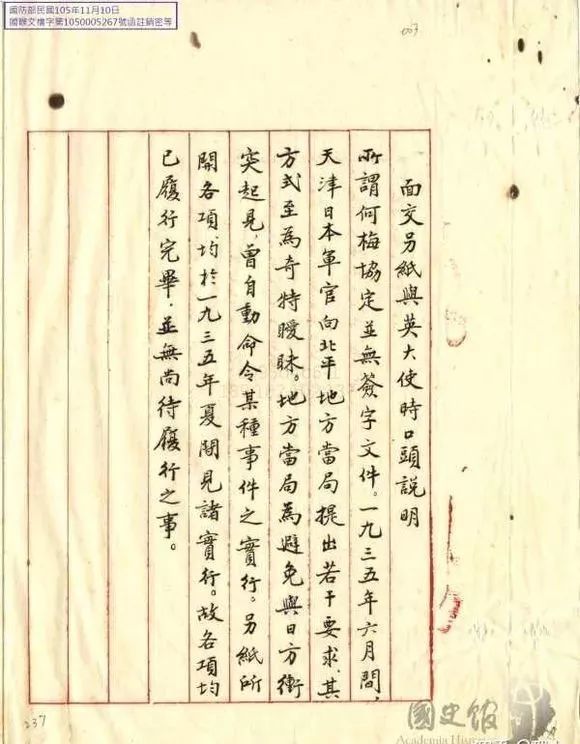 國防部民國105年11月10日
國聯文檔字第1050005267號函註銷密等
003
面交另紙與英大使時口頭說明
所謂何梅協定並無簽字文件。一九三五年六月間，
天津日本軍官向北平地方當局提出若干要求，其
方式至為奇特曖昧。地方當局為避免與日方衝
突起見，曾自動命令某種事件之實行。另紙所
開各項，均於一九三五年夏間見諸實行。故各項均
已履行完畢，並無尚待履行之事。
237
國史館